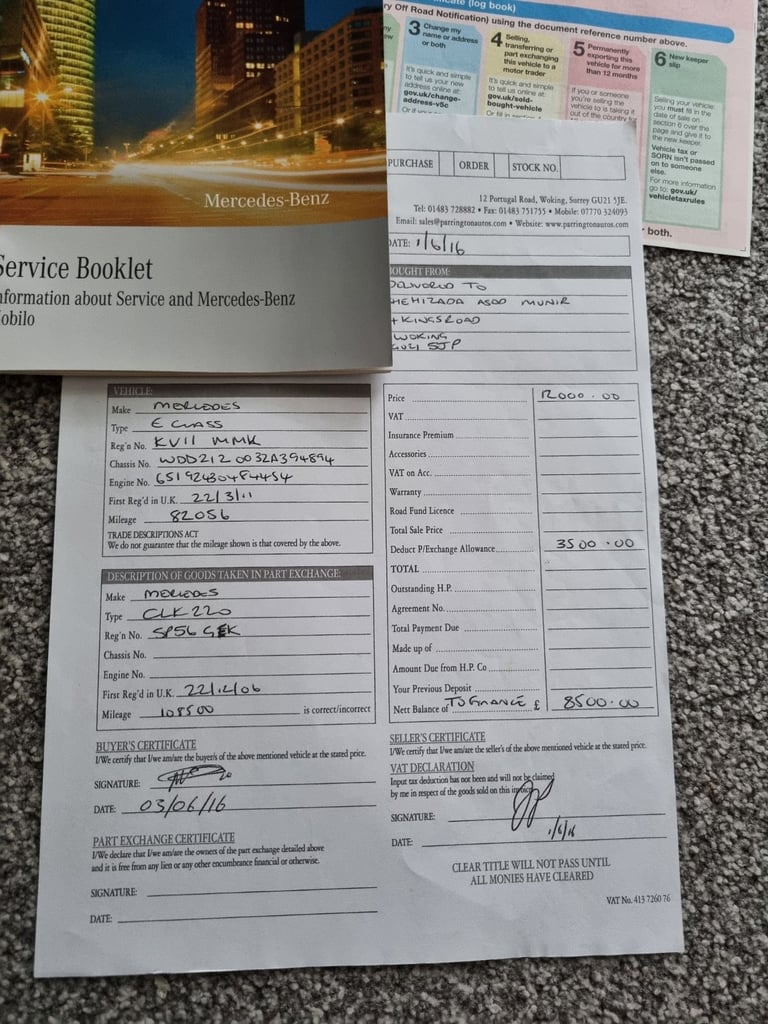 Mercedes-Benz
Service Booklet
nformation about Service and Mercedes-Benz
obilo
cate (log book)
ry Off Road Notification) using the document reference number above.
3 Change my name or address or both
It's quick and simple to tell us your new address online at:
gov.uk/change-address-v5c
4 Selling, transferring or part exchanging this vehicle to a motor trader
It's quick and simple to tell us online at:
gov.uk/sold-bought-vehicle
5 Permanently exporting this vehicle for more than 12 months
If you or someone
you're selling the
vehicle to is taking it
out of the country for
6 New keeper slip
Selling your vehicle:
you must fill in the
date of sale on
section 6 over the
page and give it to
the new keeper.
Vehicle tax or
SORN isn't passed
on to someone
else.
For more information
go to: gov.uk/
vehicletaxrules
both.
PURCHASE ORDER STOCK NO.
12 Portugal Road, Woking, Surrey GU21 5JE.
Tel: 01483 728882 • Fax: 01483 751755 • Mobile: 07770 324093
Email: sales@parringtonautos.com • Website: www.parringtonautos.com
DATE: 1/6/16
BOUGHT FROM:
DELIVERED TO
HEMIZADA ASAD MUNIR
KINGSROAD
WOKING
GU21 5JP
VEHICLE:
Make MERCEDES
Type E CLASS
Reg'n No. KV11 MMK
Chassis No. WDD212 0032A394894
Engine No. 651 92430484454
First Reg'd in U.K. 22/3/11
Mileage 82056
TRADE DESCRIPTIONS ACT
We do not guarantee that the mileage shown is that covered by the above.
DESCRIPTION OF GOODS TAKEN IN PART EXCHANGE:
Make MERCEDES
Type CLK 220
Reg'n No. SP56 GEK
Chassis No.
Engine No.
First Reg'd in U.K. 22/12/06
Mileage 108500 is correct/incorrect
Price 12000.00
VAT
Insurance Premium
Accessories
VAT on Acc.
Warranty
Road Fund Licence
Total Sale Price
Deduct P/Exchange Allowance 3500.00
TOTAL
Outstanding H.P.
Agreement No.
Total Payment Due
Made up of
Amount Due from H.P. Co
Your Previous Deposit
Nett Balance of TO FINANCE £ 8500.00
BUYER'S CERTIFICATE
I/We certify that I/we am/are the buyer/s of the above mentioned vehicle at the stated price.
SIGNATURE:
DATE: 03/06/16
PART EXCHANGE CERTIFICATE
I/We declare that I/we am/are the owners of the part exchange detailed above
and it is free from any lien or any other encumbrance financial or otherwise.
SIGNATURE:
DATE:
SELLER'S CERTIFICATE
I/We certify that I/we am/are the seller's of the above mentioned vehicle at the stated price.
VAT DECLARATION
Input tax deduction has not been and will not be claimed
by me in respect of the goods sold on this invoice
SIGNATURE:
DATE: 1/6/16
CLEAR TITLE WILL NOT PASS UNTIL
ALL MONIES HAVE CLEARED
VAT No. 413 7260 76